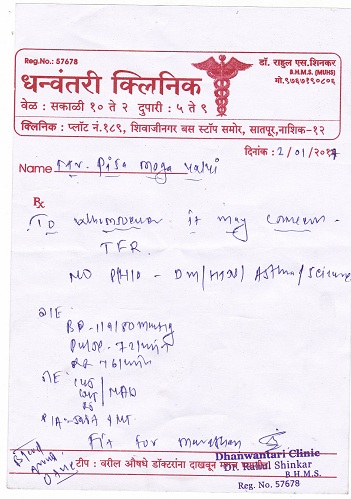 Reg.No.: 57678
डॉ. राहुल एस.शिनकर
B.H.M.S. (MUHS)
मो.९७६७१९०८०६
धन्वंतरी क्लिनिक
वेळ : सकाळी १० ते २ दुपारी : ५ ते ९
क्लिनिक : प्लॉट नं.१८९, शिवाजीनगर बस स्टॉप समोर, सातपूर, नाशिक-१२
दिनांक : 2/01/201
Name
Rx
To whomsoever it may concern -
TFR.
NO P/H/O - DM/HTN/Asthma/Seizure
O/E:
BP -
Pulse - 72/min
RR
S/E: CVS
CNS / NAD
RS
P/A - Soft & NT.
Fit for marathon
Blood
टीप : वरील औषधे डॉक्टरांना दाखवून
Dhanwantari Clinic
Dr. Rahul Shinkar
B.H.M.S.
Reg. No. 57678